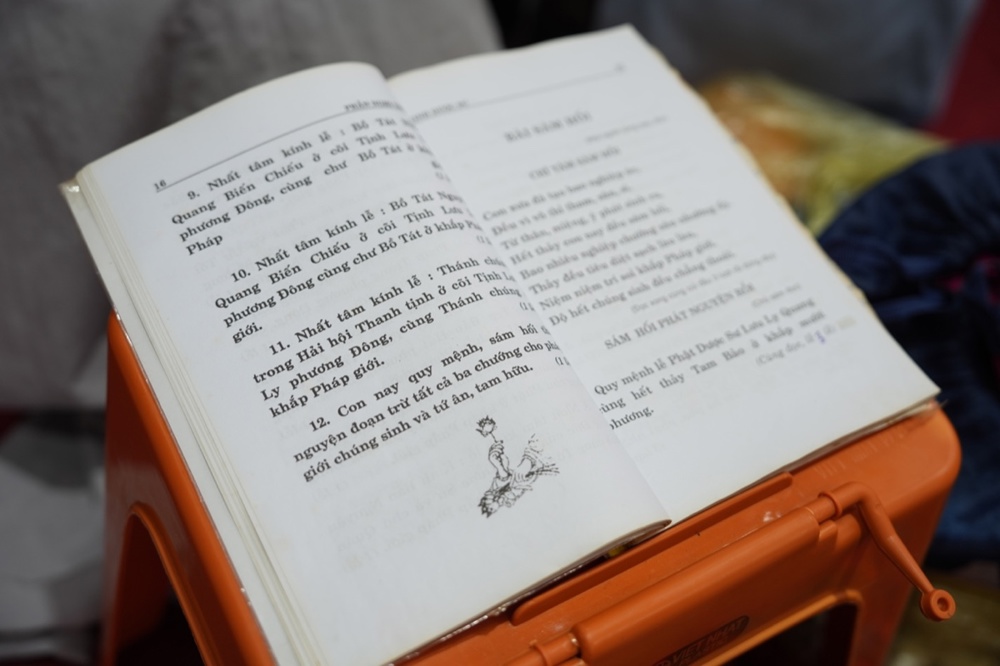 16
9. Nhất tâm kính lễ : Bồ Tát
Quang Biến Chiếu ở cõi Tịnh Lưu
phương Đông, cùng chư Bồ Tát ở
Pháp
10. Nhất tâm kính lễ : Bồ Tát
Quang Biến Chiếu ở cõi Tịnh Lưu
phương Đông cùng chư Bồ Tát ở khắp
giới.
11. Nhất tâm kính lễ : Thánh
trong Hải hội Thanh tịnh ở cõi Tịnh
Ly phương Đông, cùng Thánh chúng
khắp Pháp giới.
12. Con nay quy mệnh, sám hối
nguyện đoạn trừ tất cả ba chướng cho
giới chúng sinh và tứ ân, tam hữu.
BÀI SÁM HỐI
CHỮ TÂM SÁM HỐI
Con xưa đã tạo bao nghiệp ác,
Đều vì vô thỉ tham, sân, si,
Từ thân, miệng, ý phát sinh ra,
Hết thảy con nay đều sám hối,
Bao nhiêu nghiệp chướng sâu
Thảy đều tiêu diệt sạch làu làu,
Niệm niệm trí soi khắp Pháp giới,
Độ hết chúng sinh đều chẳng thoái.
SÁM HỐI PHÁT NGUYỆN RỒI
Quy mệnh lễ Phật Dược Sư Lưu Ly Quang
cùng hết thảy Tam Bảo ở khắp mười
phương.